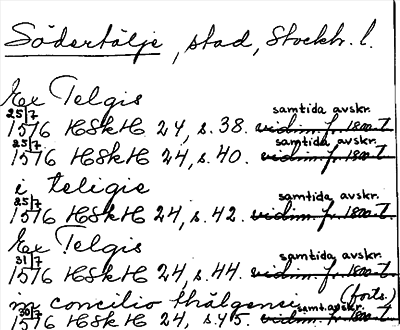 Södertälje, stad, Stockh. l.
Ex Telgis
25/7 samtida avskr.
1516 HSkH 24, s. 38. vidim. f. 1800-t.
25/7 samtida avskr.
1516 HSkH 24, s. 40. vidim. f. 1800-t.
i teligie
25/7 samtida avskr.
1516 HSkH 24, s. 42. vidim. f. 1800-t.
Ex Telgis
31/7 samtida avskr.
1516 HSkH 24, s. 44. vidim. f. 1800-t.
concilio thälgensi (forts.)
30/7 samt. avskr.
1516 HSkH 24, s. 45. vidim. f. 1800-t.